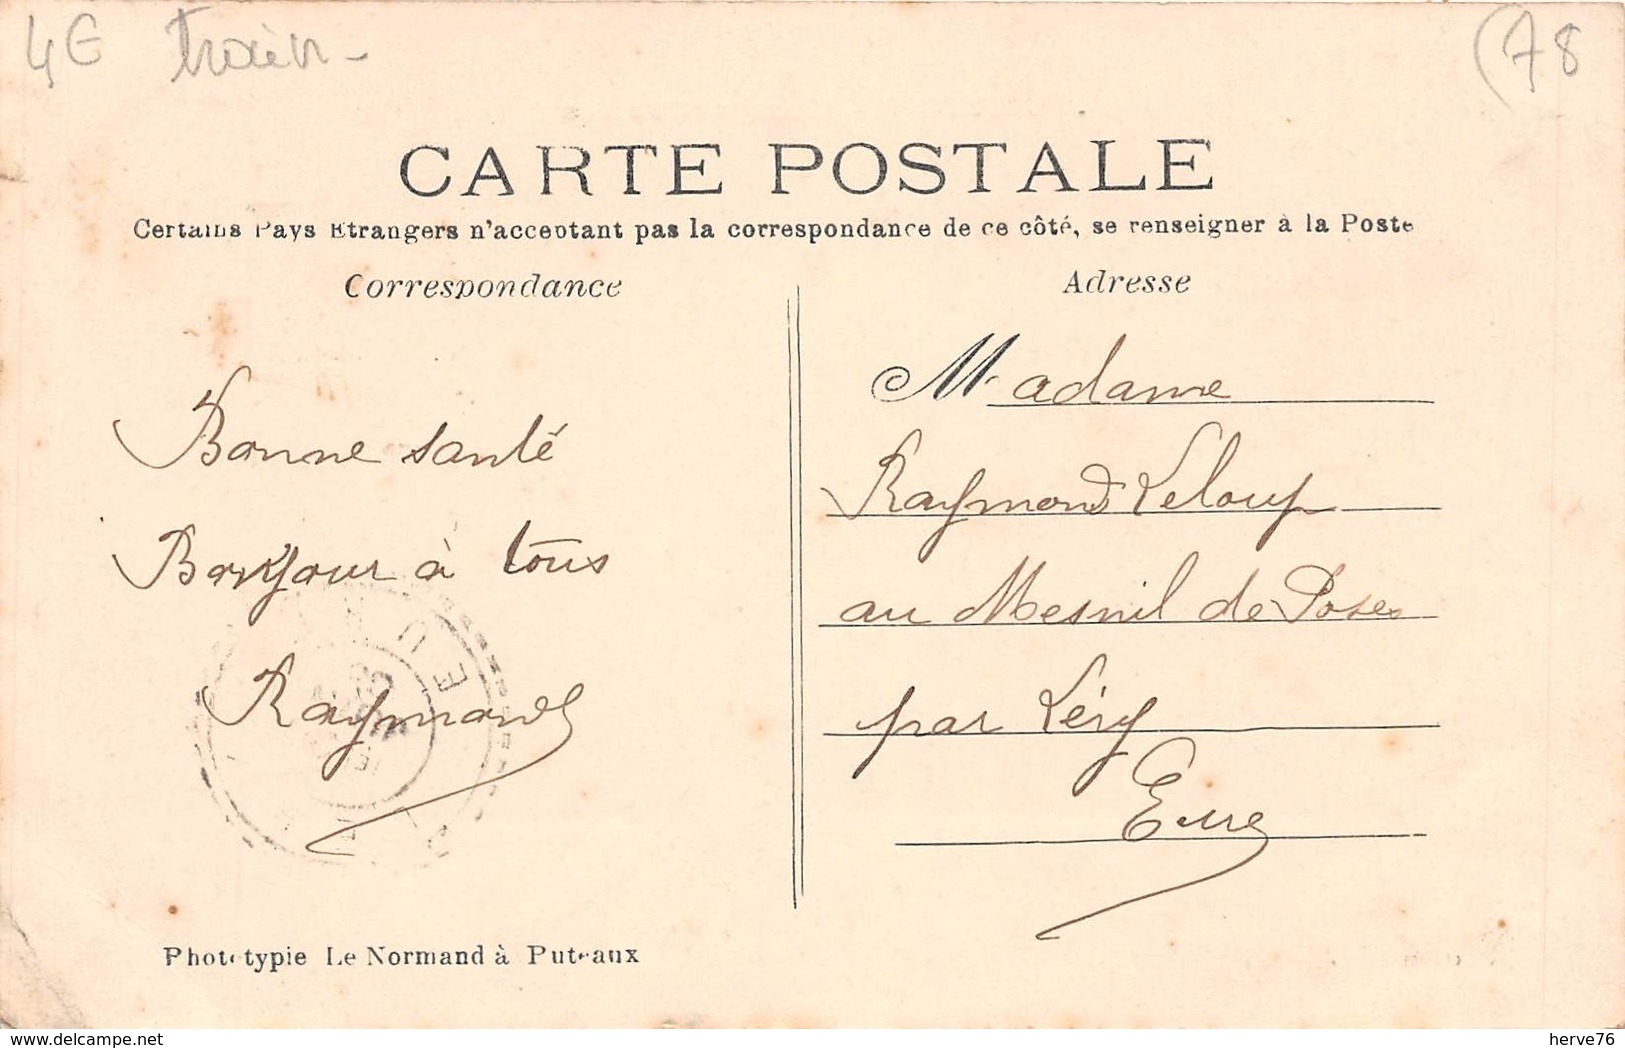 4€ train -
(78
CARTE POSTALE
Certains Pays Etrangers n'acceptant pas la correspondance de ce côté, se renseigner à la Poste
Correspondance
Adresse
Bonne santé
Bonjour à tous
Raymond
Madame
Raymond Leloup
au Mesnil de Poses
par Léry
Eure
Phototypie Le Normand à Puteaux
www.delcampe.net
herve76